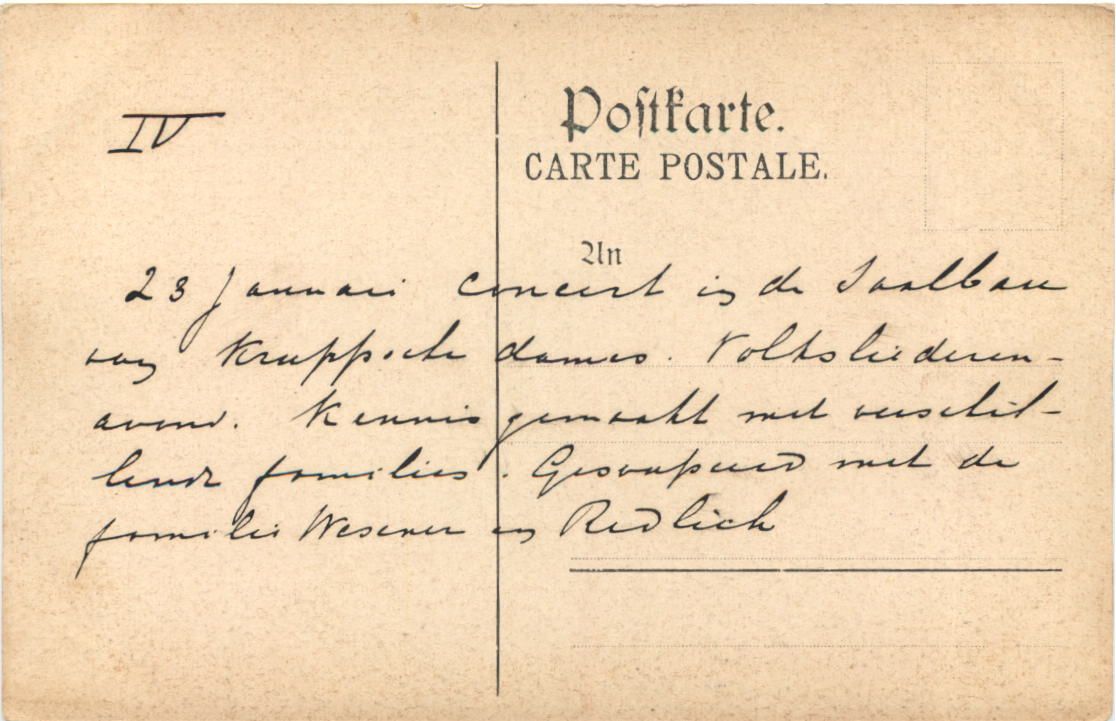 IV
Postkarte.
CARTE POSTALE.
An
23 Januari concert in de Saalbau
van Kruppsche dames. Volksliederen-
avond. Kennis gemaakt met verschil-
lende families. Gesoupeerd met de
familie Wesener en Redlich